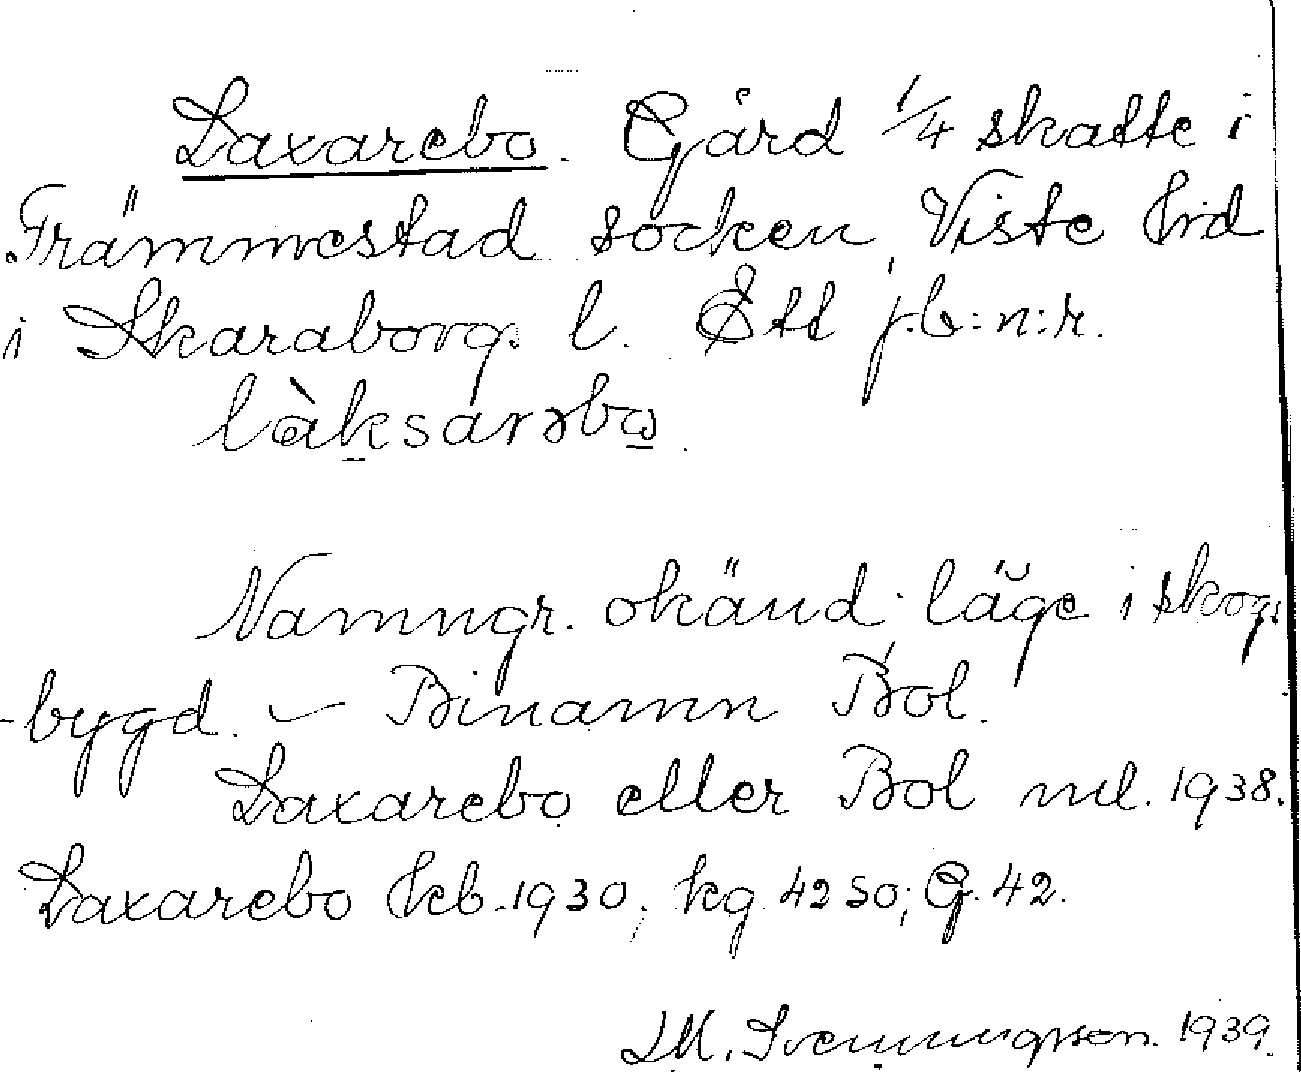 Laxarebo. Gård 1/4 skatte i
Främmestad socken, Viste hrd
i Skaraborg. l. Ett j.b:n:r.
làksarəbo.
Namngr. okänd; läge i skog.
-bygd. – Binamn Bol.
Laxarebo eller Bol ml. 1938.
Laxarebo hkb. 1930; kg 42 SO; G. 42.
J.M. Svenningsson. 1939.